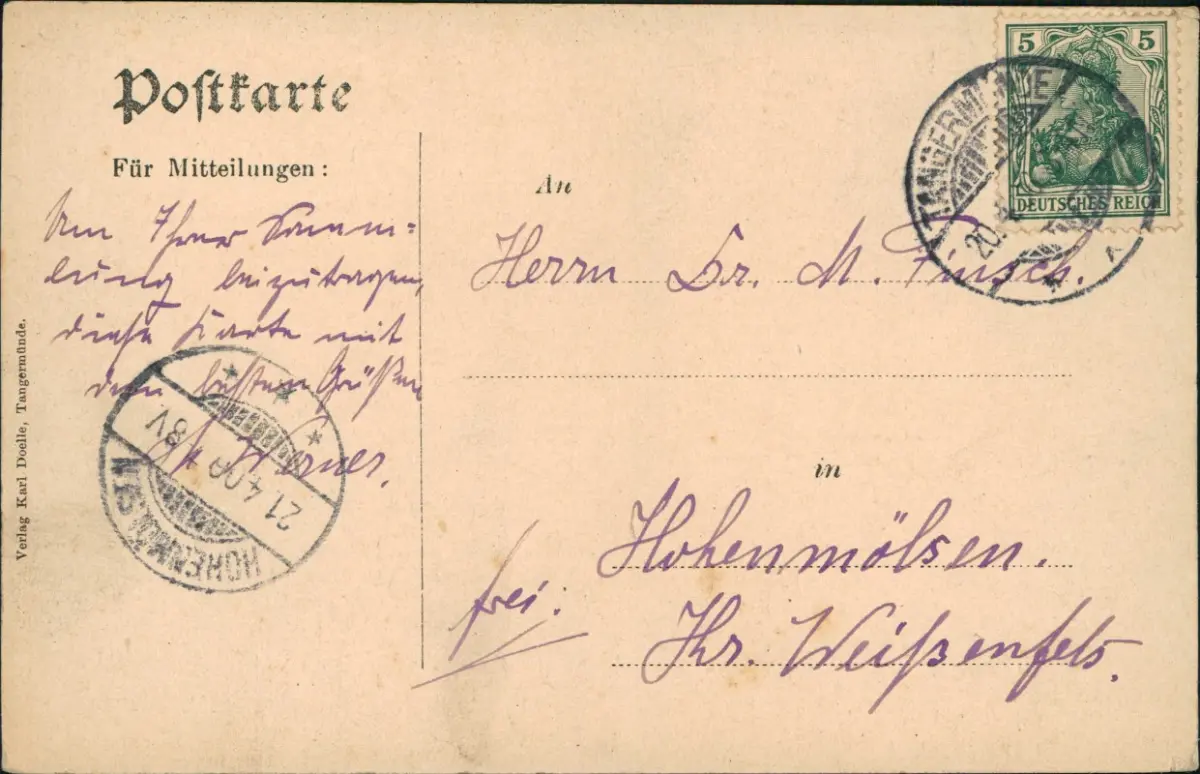 Postkarte
Für Mitteilungen:
Um Ihrer Samm-
lung beizutragen,
diese Karte mit
den besten Grüßen
Werner.
Verlag Karl Doelle, Tangermünde.
HOHENMÖLSEN
21.4.09 8V
5 5
DEUTSCHES REICH
TANGERMÜNDE
20.
An
Herrn Dr. M. Finsch.
in
Hohenmölsen.
frei.
Kr. Weißenfels.